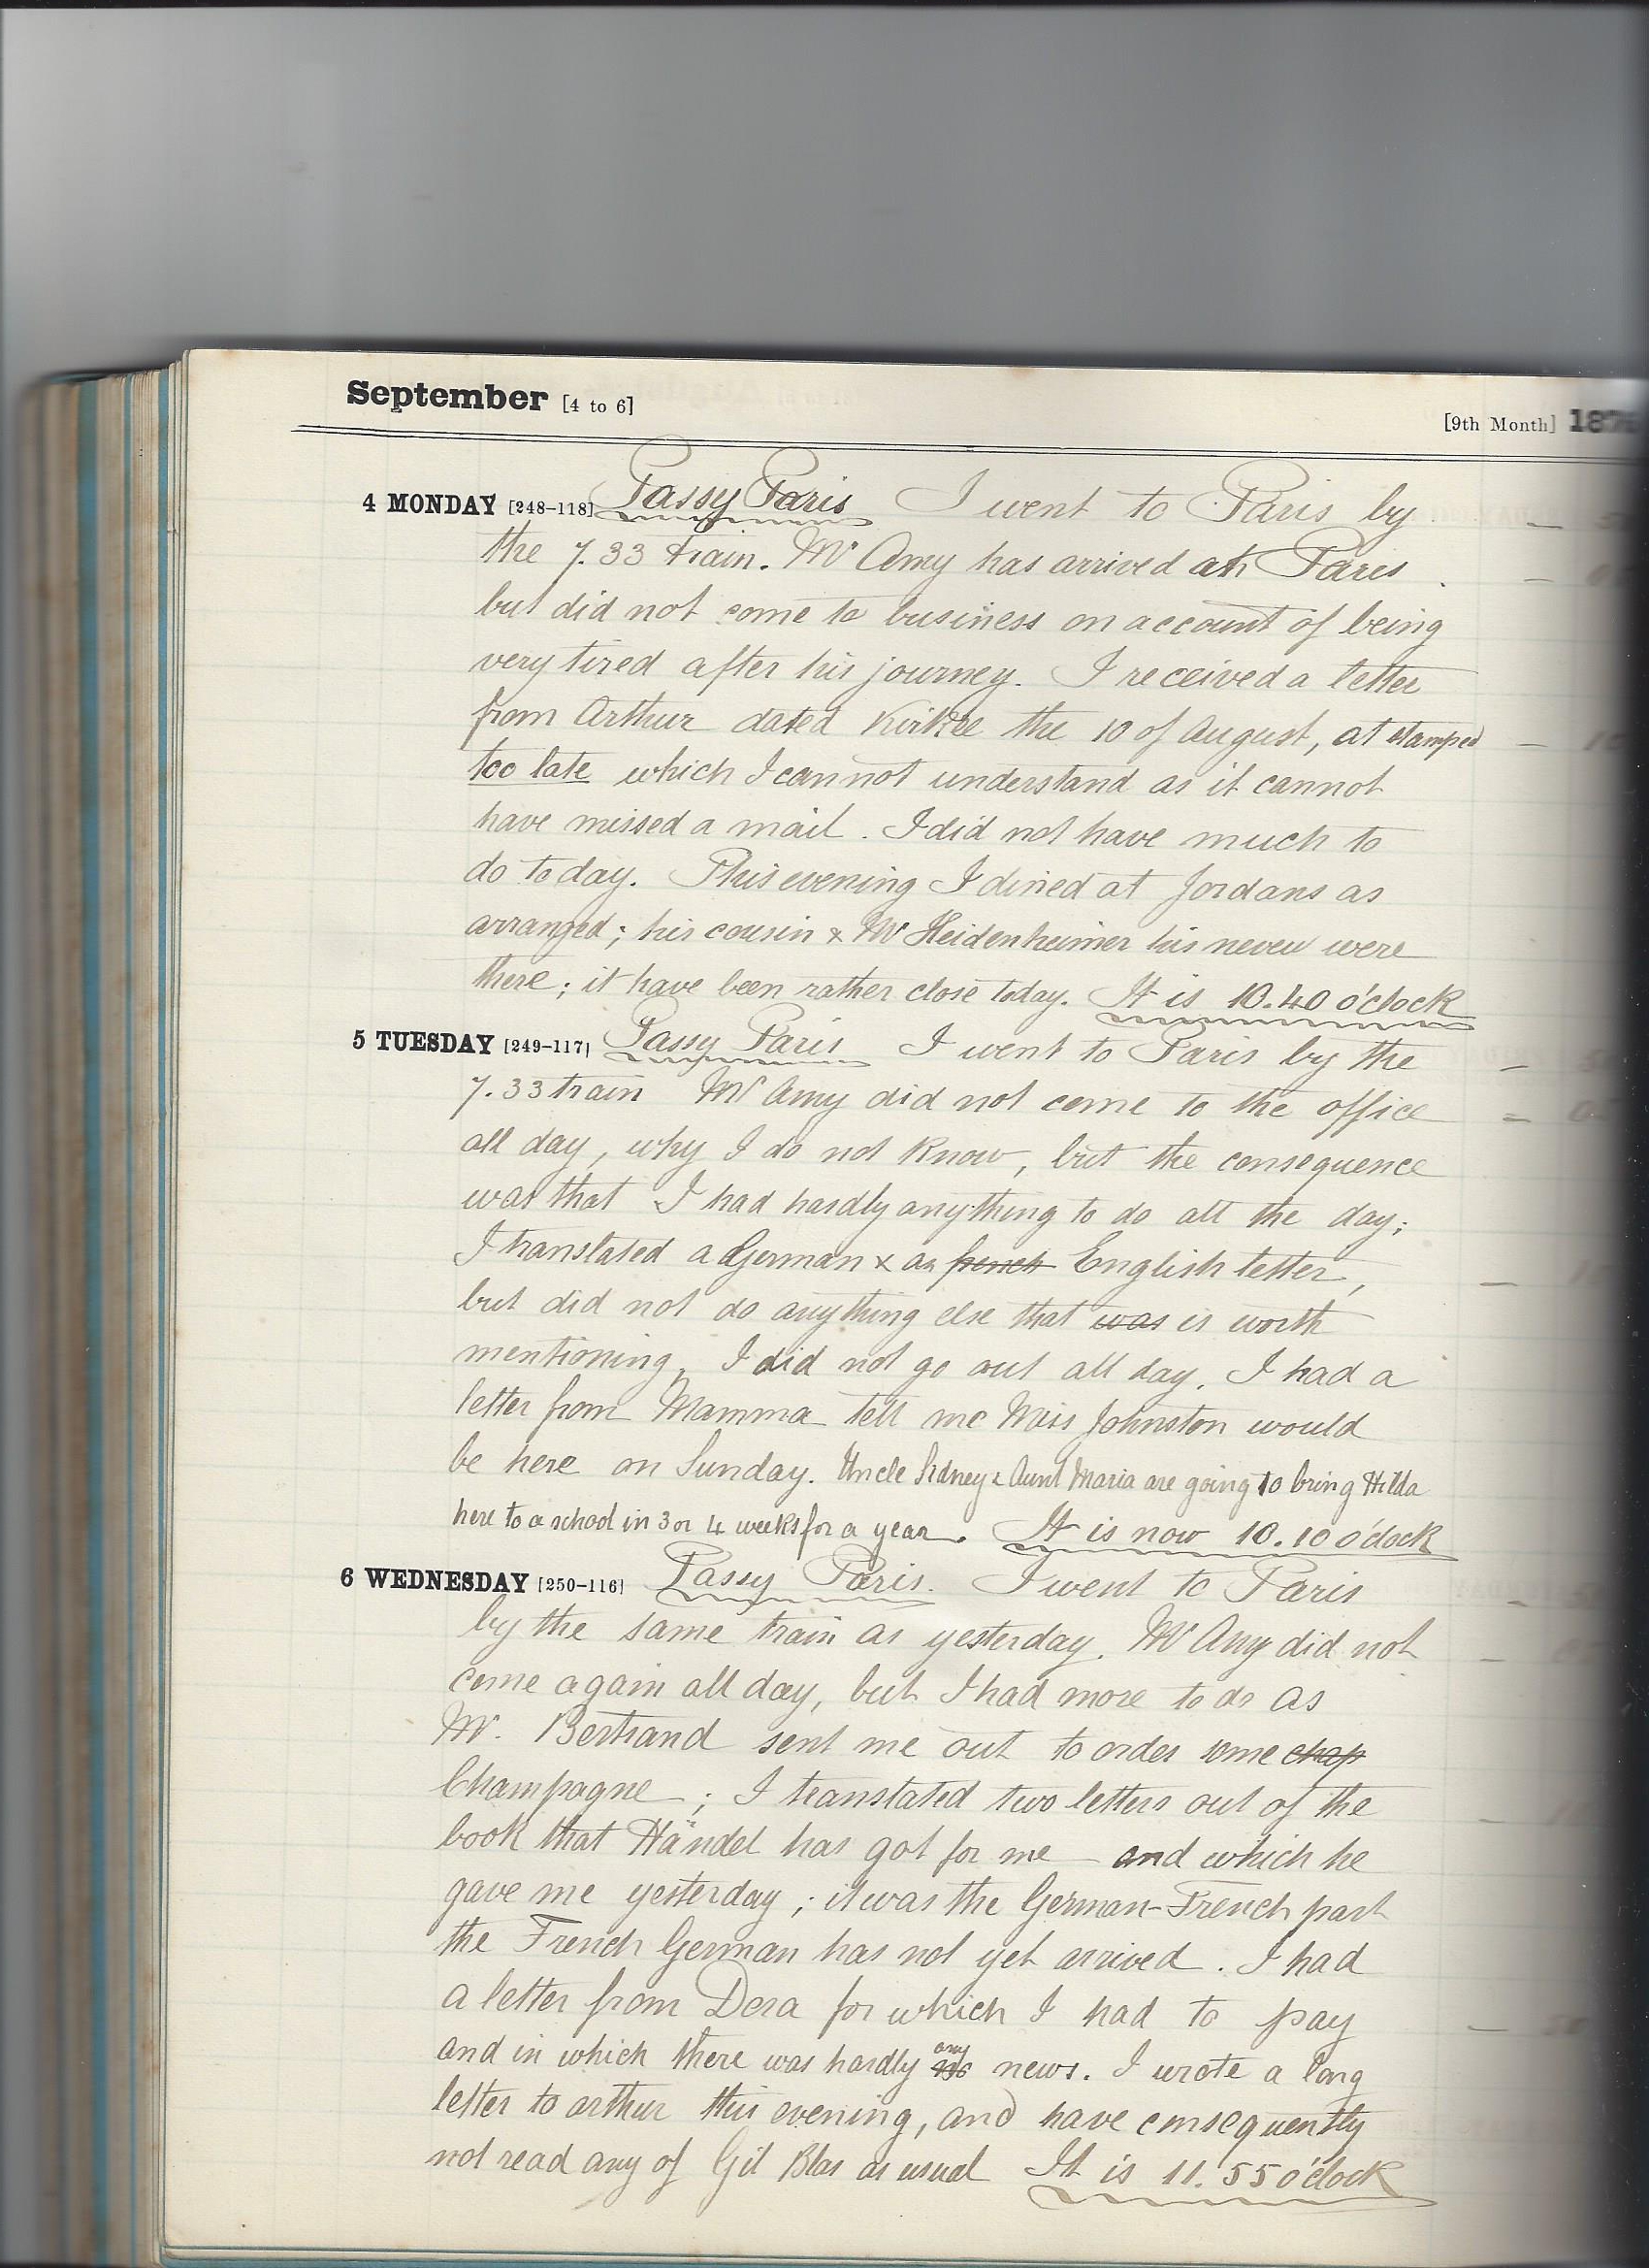 September [4 to 6]
[9th Month] 187
4 MONDAY [248-118] Passy Paris I went to Paris by
the 7.33 train. Mr Amy has arrived at Paris
but did not come to business on account of being
very tired after his journey. I received a letter
from Arthur dated Kirkee the 10 of August, at stamped
too late which I cannot understand as it cannot
have missed a mail. I did not have much to
do to day. This evening I dined at Jordans as
arranged; his cousin & Mr Heidenheimer his neveu were
there; it have been rather close today. It is 10.40 o'clock
5 TUESDAY [249-117] Passy Paris I went to Paris by the
7.33 train Mr Amy did not come to the office
all day, why I do not know, but the consequence
was that I had hardly anything to do all the day;
I translated a German & an french English letter,
but did not do anything else that was is worth
mentioning, I did not go out all day. I had a
letter from Mamma tell me Miss Johnston would
be here on Sunday. Uncle Sidney & Aunt Maria are going to bring Hilda
here to a school in 3 or 4 weeks for a year. It is now 10.10 o'clock
6 WEDNESDAY [250-116] Passy Paris. I went to Paris
by the same train as yesterday. Mr Amy did not
come again all day, but I had more to do as
Mr. Bertrand sent me out to order some chap
Champagne; I translated two letters out of the
book that Händel has got for me and which he
gave me yesterday; it was the German-French part
the French German has not yet arrived. I had
a letter from Dora for which I had to pay
and in which there was hardly any news. I wrote a long
letter to arthur this evening, and have consequently
not read any of Gil Blas as usual It is 11.55 o'clock